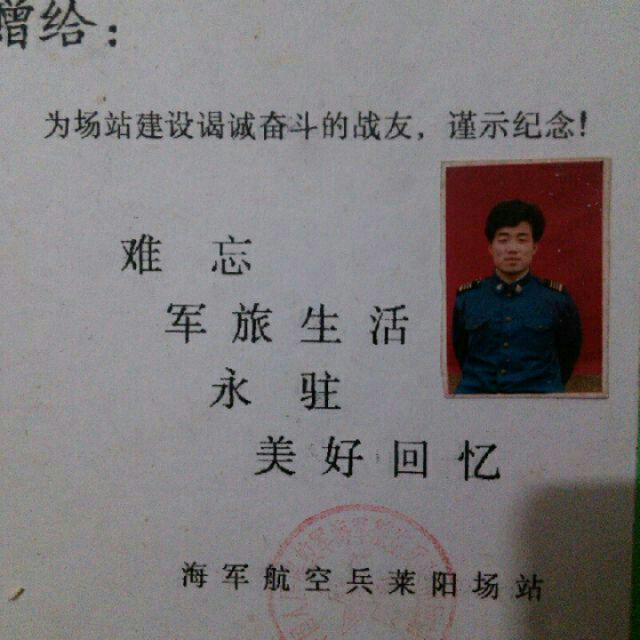 赠给：
为场站建设谒诚奋斗的战友，谨示纪念！
难忘
军旅生活
永驻
美好回忆
海军航空兵莱阳场站